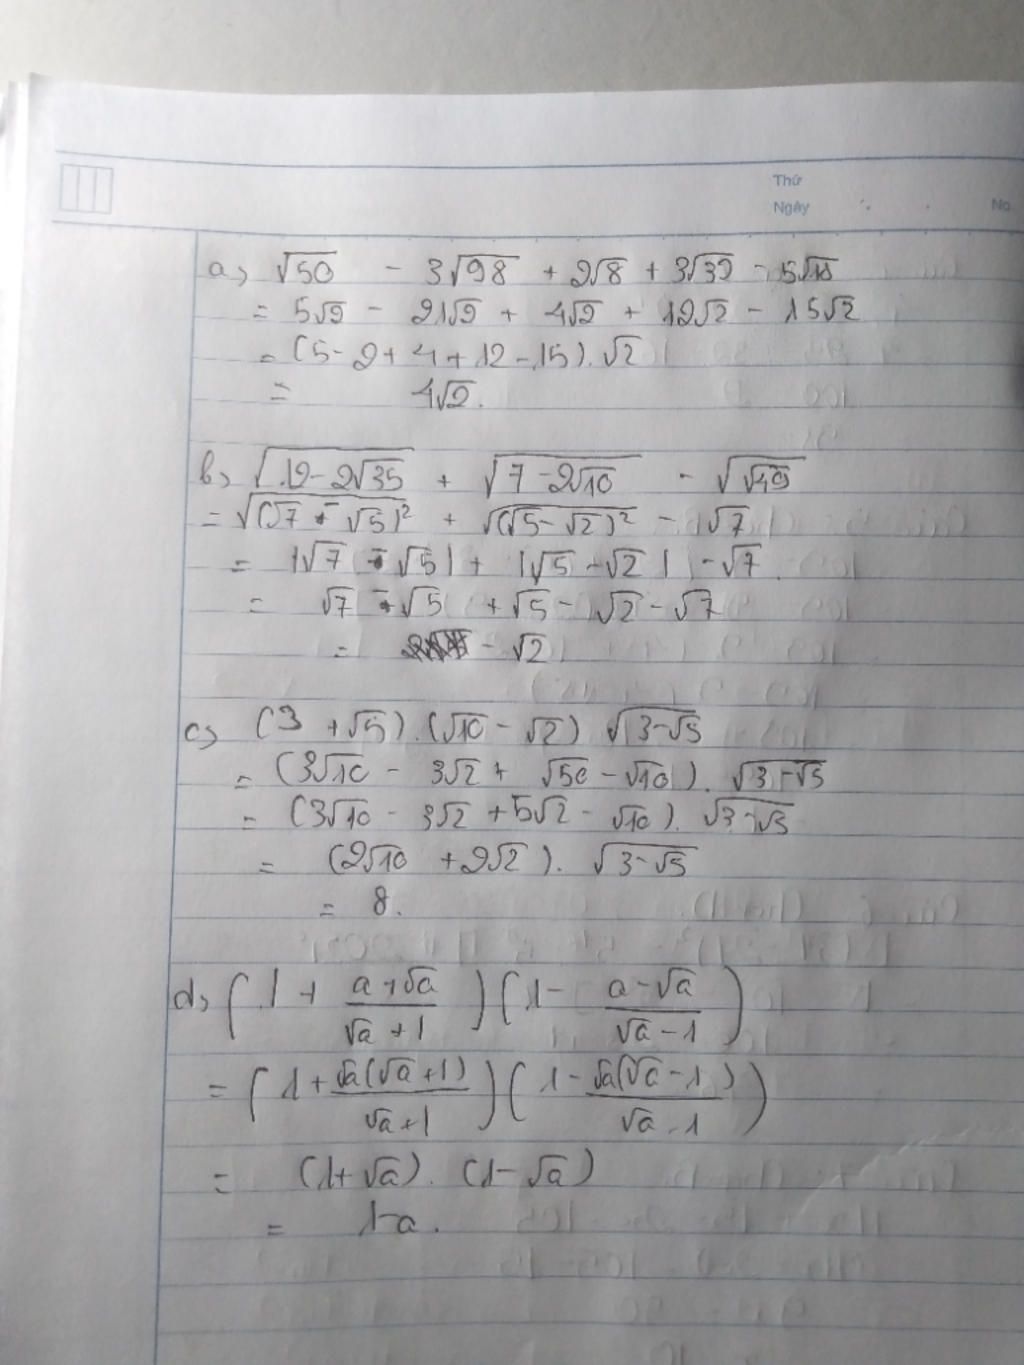 Thứ
Ngày
No
a) √50 - 3√98 + 2√8 + 3√32 - 5√18
= 5√2 - 21√2 + 4√2 + 12√2 - 15√2
= (5 - 2 + 4 + 12 - 15).√2
= 4√2.
b) √(12 - 2√35) + √(7 - 2√10) - √(√49)
= √(√7 - √5)² + √(√5 - √2)² - √7
= |√7 - √5| + |√5 - √2| - √7
= √7 - √5 + √5 - √2 - √7
= - √2
c) (3 + √5).(√10 - √2) √(3-√5)
= (3√10 - 3√2 + √50 - √10). √(3-√5)
= (3√10 - 3√2 + 5√2 - √10). √(3-√5)
= (2√10 + 2√2). √(3-√5)
= 8.
d) (1 + (a+√a)/(√a+1)) (1 - (a-√a)/(√a-1))
= (1 + √a(√a+1)/(√a+1)) (1 - √a(√a-1)/(√a-1))
= (1+√a). (1-√a)
= 1-a.